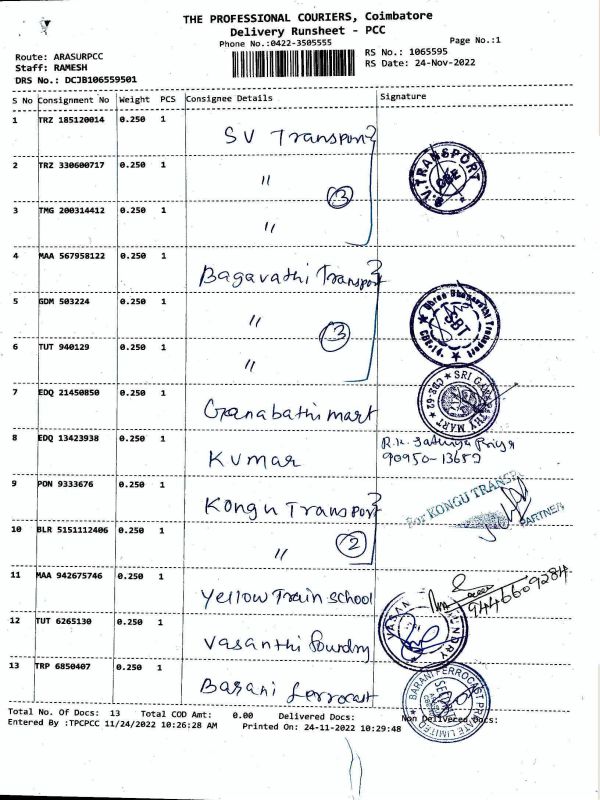 THE PROFESSIONAL COURIERS, Coimbatore
Delivery Runsheet - PCC
Phone No.:0422-3505555
Page No.:1
Route: ARASURPCC
Staff: RAMESH
DRS No.: DCJB106559501
RS No.: 1065595
RS Date: 24-Nov-2022
S No Consignment No Weight PCS Consignee Details Signature
1 TRZ 185120014 0.250 1 SV Transport
2 TRZ 330600717 0.250 1 〃 3
S.V. TRANSPORT CBE
3 TMG 200314412 0.250 1 〃
4 MAA 567958122 0.250 1 Bagavathi Transport
5 GDM 503224 0.250 1 〃 3
Shree Bhagavathi Transport SBT CBE-14.
6 TUT 940129 0.250 1 〃
7 EDQ 21450850 0.250 1 Ganabathi mart
SRI GANAPATHY MART CBE-62
8 EDQ 13423938 0.250 1 Kumar
R.K. Sathiya Priya
90950-13652
9 PON 9333676 0.250 1 Kongu Transport
For KONGU TRANSP
PARTNER
10 BLR 5151112406 0.250 1 〃 2
11 MAA 942675746 0.250 1 Yellow Train school
9446609284
12 TUT 6265130 0.250 1 Vasanthi foundry
13 TRP 6850407 0.250 1 Barani ferrocast
BARANI FERROCAST PRIVATE LIMITED
Total No. Of Docs: 13 Total COD Amt: 0.00 Delivered Docs: Non Delivered Docs:
Entered By :TPCPCC 11/24/2022 10:26:28 AM Printed On: 24-11-2022 10:29:48